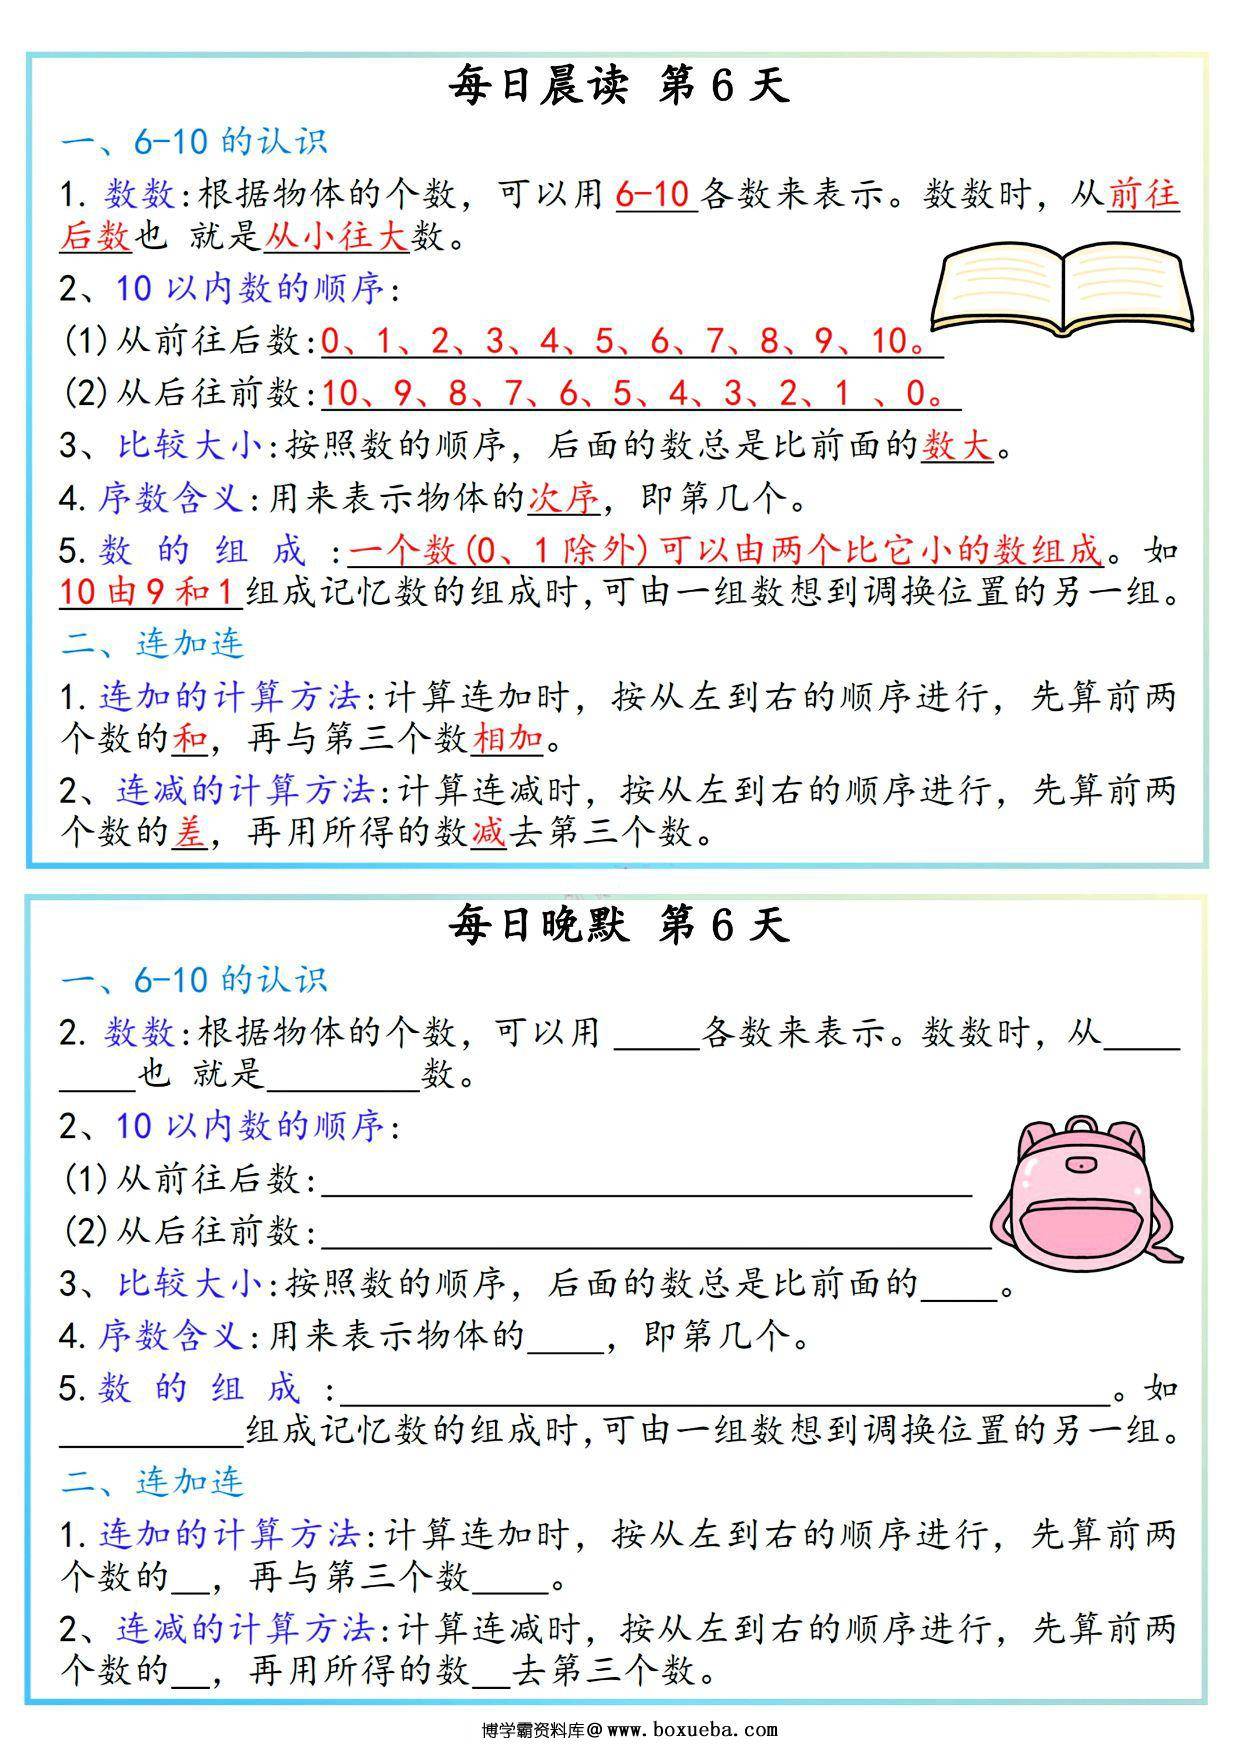 每日晨读 第6天
一、6-10的认识
1. 数数:根据物体的个数，可以用6-10各数来表示。数数时，从前往
后数也 就是从小往大数。
2、10以内数的顺序:
(1)从前往后数:0、1、2、3、4、5、6、7、8、9、10。
(2)从后往前数:10、9、8、7、6、5、4、3、2、1 、0。
3、比较大小:按照数的顺序，后面的数总是比前面的数大。
4.序数含义:用来表示物体的次序，即第几个。
5.数 的 组 成 :一个数(0、1除外)可以由两个比它小的数组成。如
10由9和1组成记忆数的组成时,可由一组数想到调换位置的另一组。
二、连加连
1.连加的计算方法:计算连加时，按从左到右的顺序进行，先算前两
个数的和，再与第三个数相加。
2、连减的计算方法:计算连减时，按从左到右的顺序进行，先算前两
个数的差，再用所得的数减去第三个数。
每日晚默 第6天
一、6-10的认识
2. 数数:根据物体的个数，可以用_____各数来表示。数数时，从____
____也 就是________数。
2、10以内数的顺序:
(1)从前往后数:__________________________________
(2)从后往前数:___________________________________
3、比较大小:按照数的顺序，后面的数总是比前面的____。
4.序数含义:用来表示物体的____，即第几个。
5.数 的 组 成 :________________________________________。如
__________组成记忆数的组成时,可由一组数想到调换位置的另一组。
二、连加连
1.连加的计算方法:计算连加时，按从左到右的顺序进行，先算前两
个数的__，再与第三个数____。
2、连减的计算方法:计算连减时，按从左到右的顺序进行，先算前两
个数的__，再用所得的数__去第三个数。
博学霸资料库@www.boxueba.com